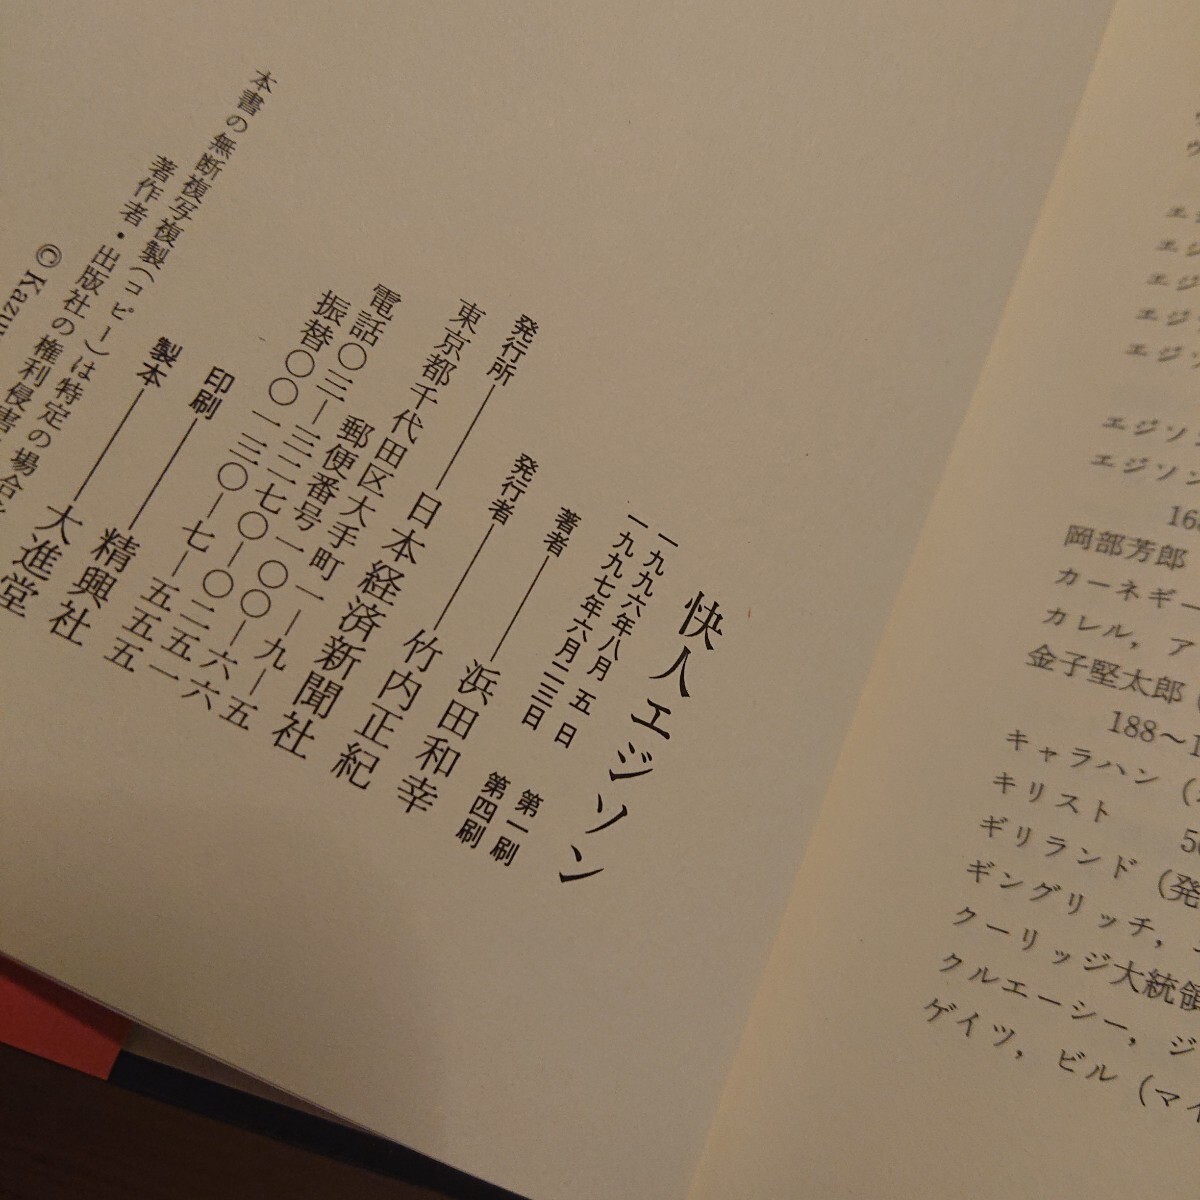 快人エジソン
一九九六年八月 五 日 第一刷
一九九七年六月二三日 第四刷
著者――浜田和幸
発行者――竹内正紀
発行所――日本経済新聞社
東京都千代田区大手町一―九―五
郵便番号一〇〇―六六
電話〇三―三二七〇―〇二五一
振替〇〇一三〇―七―五五五
印刷――精興社
製本――大進堂
本書の無断複写複製(コピー)は特定の場合を
著作者・出版社の権利侵害
©Kazu
エジソン
エジソン
16
岡部芳郎
カーネギー
カレル, ア
金子堅太郎(
188〜1
キャラハン(
キリスト 50
ギリランド(発
ギングリッチ,
クーリッジ大統領
クルエーシー, ジ
ゲイツ, ビル(マイ